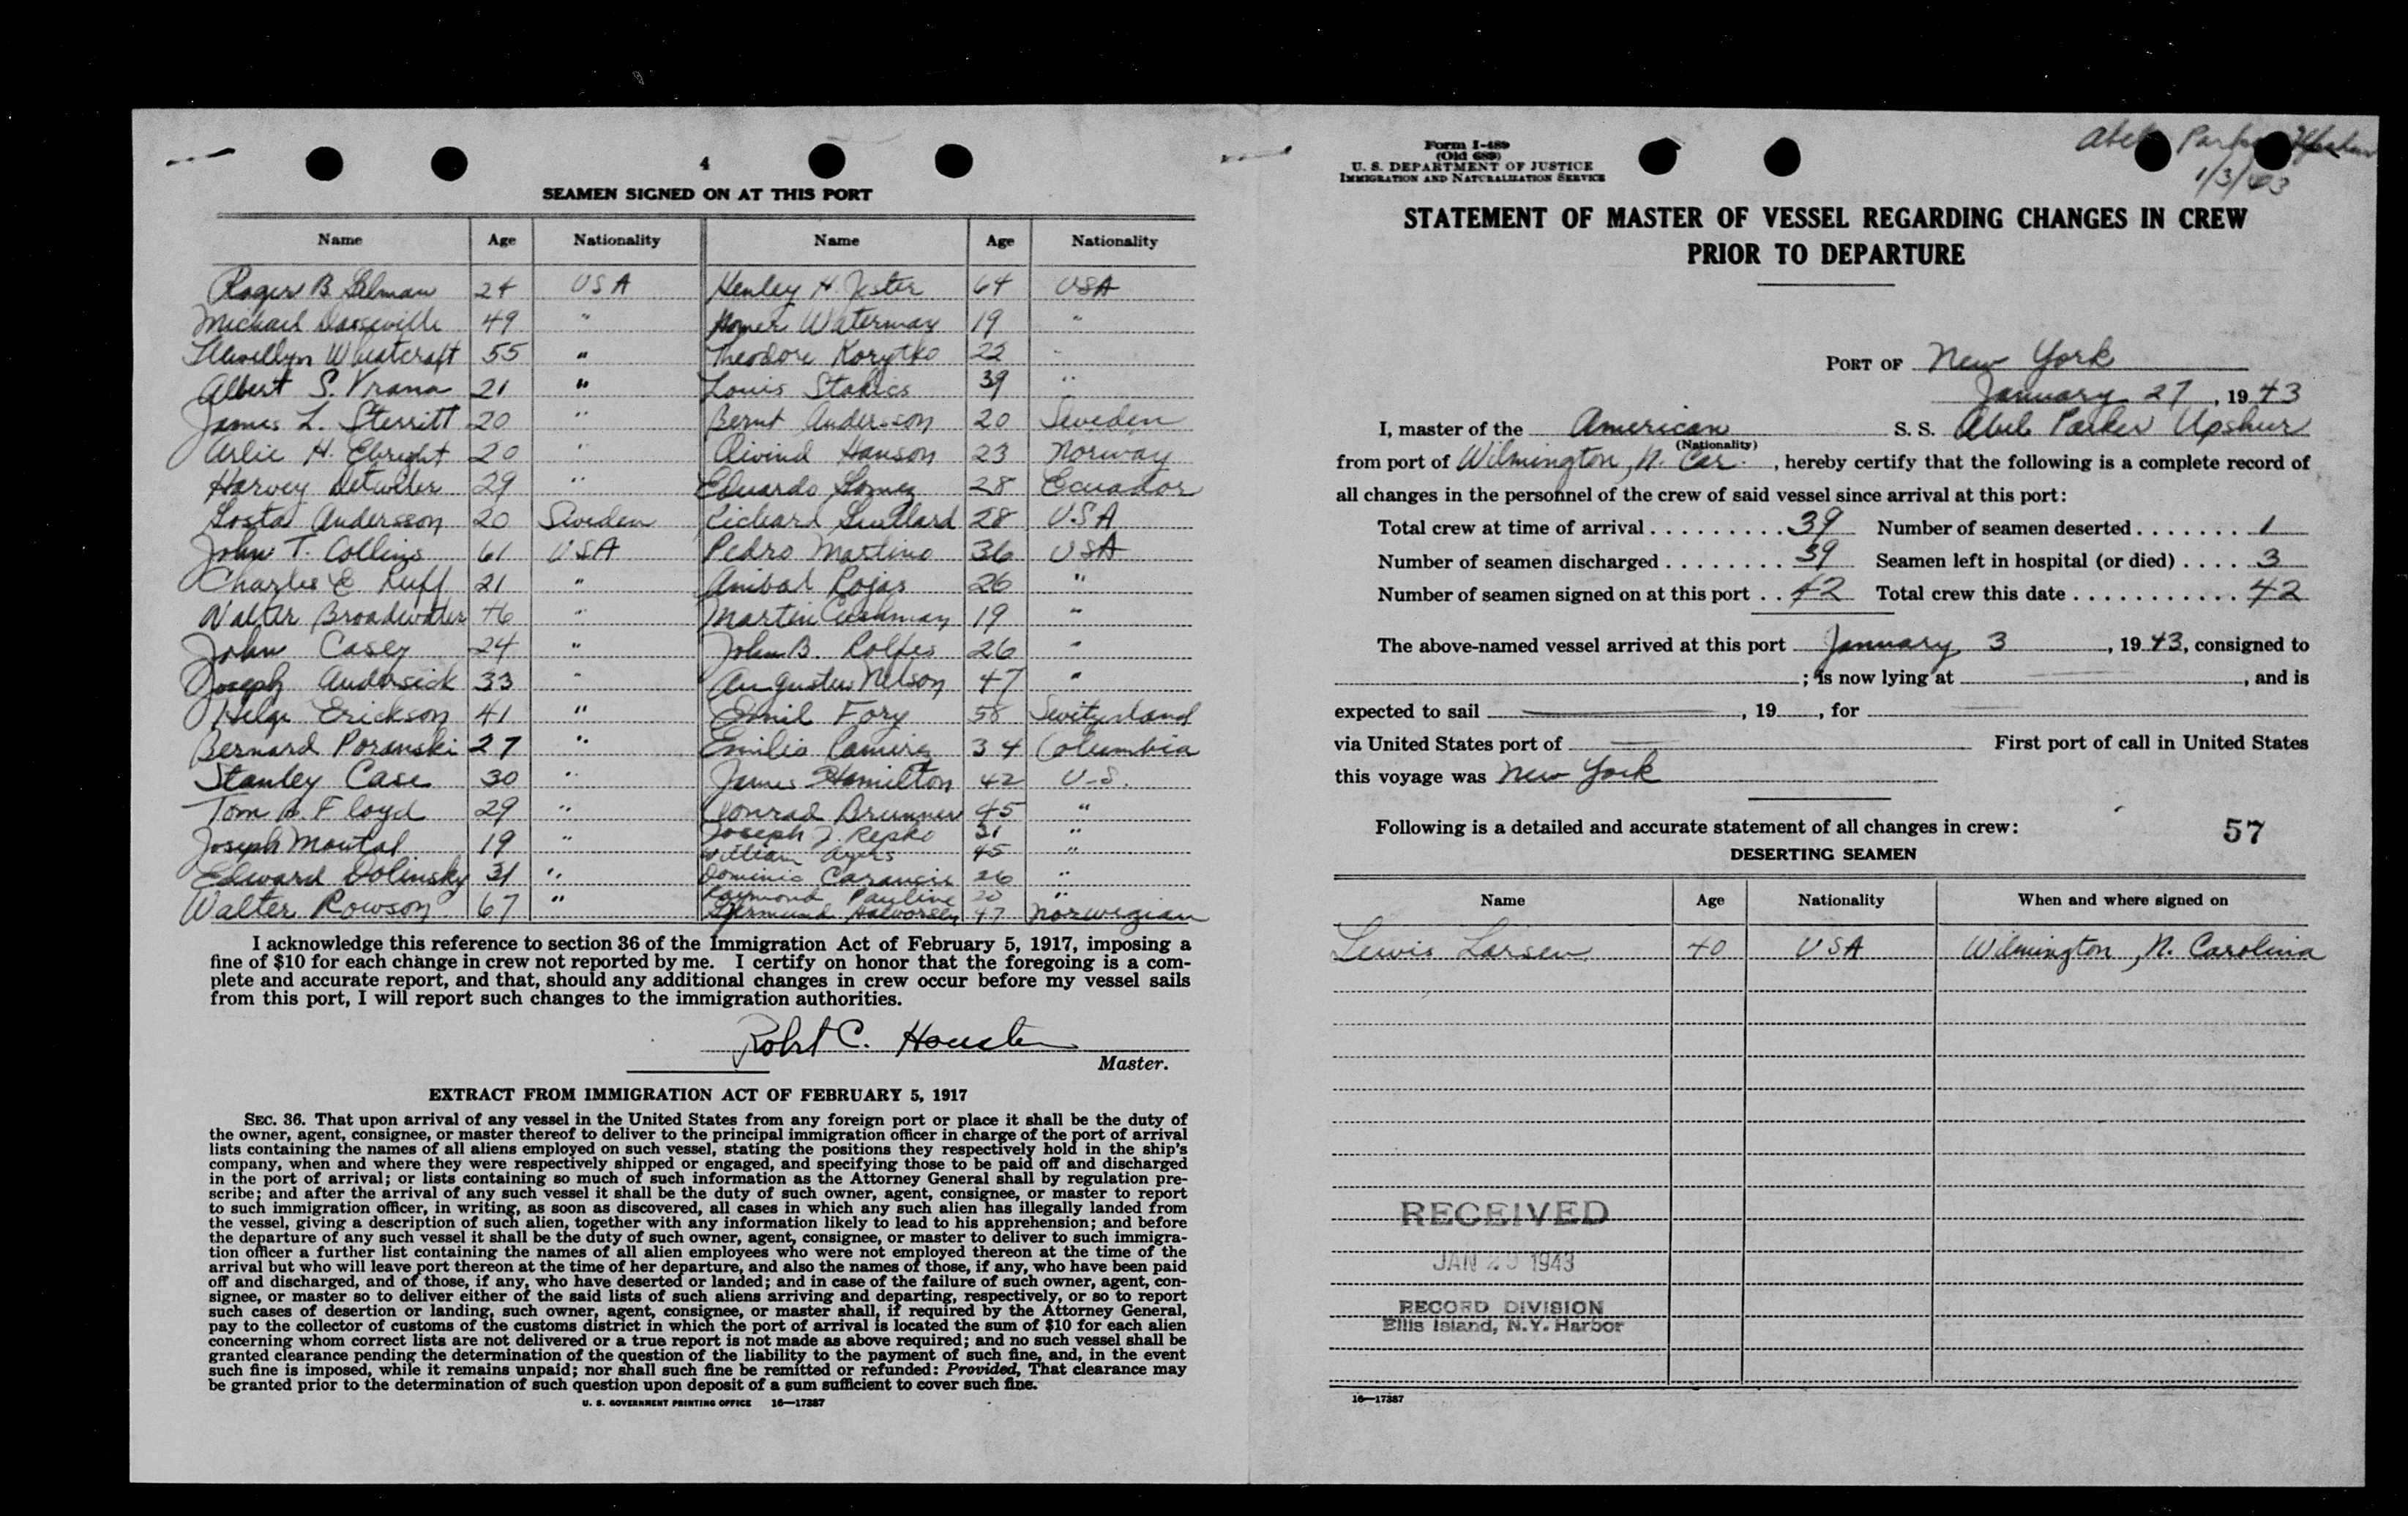 4
SEAMEN SIGNED ON AT THIS PORT
Name Age Nationality Name Age Nationality
Roger B 24 USA Henley H. Jester 64 USA
Michael 49 " Homer Waterman 19 "
Llewellyn Wheatcraft 55 " Theodore Korytko 22 "
Albert S. Vrana 21 " Louis 39 "
James L. Sterritt 20 " Bernt Andersson 20 Sweden
Arlie H. Ebright 20 " Eivind Hanson 23 Norway
Harvey Detwiler 29 " Eduardo Gomez 28 Ecuador
Gosta Andersson 20 Sweden Richard 28 USA
John T. Collins 61 USA Pedro Martino 36 USA
Charles E Ruff 21 " Anibal Rojas 26 "
Walter Broadwater 46 " Martin Cushman 19 "
John Casey 24 " John B. Rolfes 26 "
Joseph Andersick 33 " Augustus Nelson 47 "
Helge Erickson 41 " Emil Fory 58 Switzerland
Bernard Poranski 27 " Emilio Ramirez 34 Columbia
Stanley Case 30 " James Hamilton 42 U.S.
Tom A. Floyd 29 " Conrad Brunner 45 "
Joseph Moutal 19 " Joseph J. Repko 31 "
William Ayers 45 "
Edward Dolinsky 31 " Dominic 26 "
Raymond Pauline 20 "
Walter Rowson 67 " Halvorsen 47 Norwegian
I acknowledge this reference to section 36 of the Immigration Act of February 5, 1917, imposing a
fine of $10 for each change in crew not reported by me. I certify on honor that the foregoing is a com-
plete and accurate report, and that, should any additional changes in crew occur before my vessel sails
from this port, I will report such changes to the immigration authorities.
Robt C. Houston
Master.
EXTRACT FROM IMMIGRATION ACT OF FEBRUARY 5, 1917
SEC. 36. That upon arrival of any vessel in the United States from any foreign port or place it shall be the duty of
the owner, agent, consignee, or master thereof to deliver to the principal immigration officer in charge of the port of arrival
lists containing the names of all aliens employed on such vessel, stating the positions they respectively hold in the ship's
company, when and where they were respectively shipped or engaged, and specifying those to be paid off and discharged
in the port of arrival; or lists containing so much of such information as the Attorney General shall by regulation pre-
scribe; and after the arrival of any such vessel it shall be the duty of such owner, agent, consignee, or master to report
to such immigration officer, in writing, as soon as discovered, all cases in which any such alien has illegally landed from
the vessel, giving a description of such alien, together with any information likely to lead to his apprehension; and before
the departure of any such vessel it shall be the duty of such owner, agent, consignee, or master to deliver to such immigra-
tion officer a further list containing the names of all alien employees who were not employed thereon at the time of the
arrival but who will leave port thereon at the time of her departure, and also the names of those, if any, who have been paid
off and discharged, and of those, if any, who have deserted or landed; and in case of the failure of such owner, agent, con-
signee, or master so to deliver either of the said lists of such aliens arriving and departing, respectively, or so to report
such cases of desertion or landing, such owner, agent, consignee, or master shall, if required by the Attorney General,
pay to the collector of customs of the customs district in which the port of arrival is located the sum of $10 for each alien
concerning whom correct lists are not delivered or a true report is not made as above required; and no such vessel shall be
granted clearance pending the determination of the question of the liability to the payment of such fine, and, in the event
such fine is imposed, while it remains unpaid; nor shall such fine be remitted or refunded: Provided, That clearance may
be granted prior to the determination of such question upon deposit of a sum sufficient to cover such fine.
U. S. GOVERNMENT PRINTING OFFICE 16—17387
Form I-489
(Old 689)
U. S. DEPARTMENT OF JUSTICE
IMMIGRATION AND NATURALIZATION SERVICE
Abel Parker Upshur
1/3/43
STATEMENT OF MASTER OF VESSEL REGARDING CHANGES IN CREW
PRIOR TO DEPARTURE
PORT OF New York
January 27, 1943
I, master of the American S. S. Abel Parker Upshur
(Nationality)
from port of Wilmington, N. Car., hereby certify that the following is a complete record of
all changes in the personnel of the crew of said vessel since arrival at this port:
Total crew at time of arrival 39 Number of seamen deserted 1
Number of seamen discharged 39 Seamen left in hospital (or died) 3
Number of seamen signed on at this port 42 Total crew this date 42
The above-named vessel arrived at this port January 3, 1943, consigned to
; is now lying at , and is
expected to sail , 19 , for
via United States port of First port of call in United States
this voyage was New York
Following is a detailed and accurate statement of all changes in crew: 57
DESERTING SEAMEN
Name Age Nationality When and where signed on
Lewis Larsen 40 USA Wilmington, N. Carolina
RECEIVED
JAN 1943
RECORD DIVISION
Ellis Island, N.Y. Harbor
16—17387